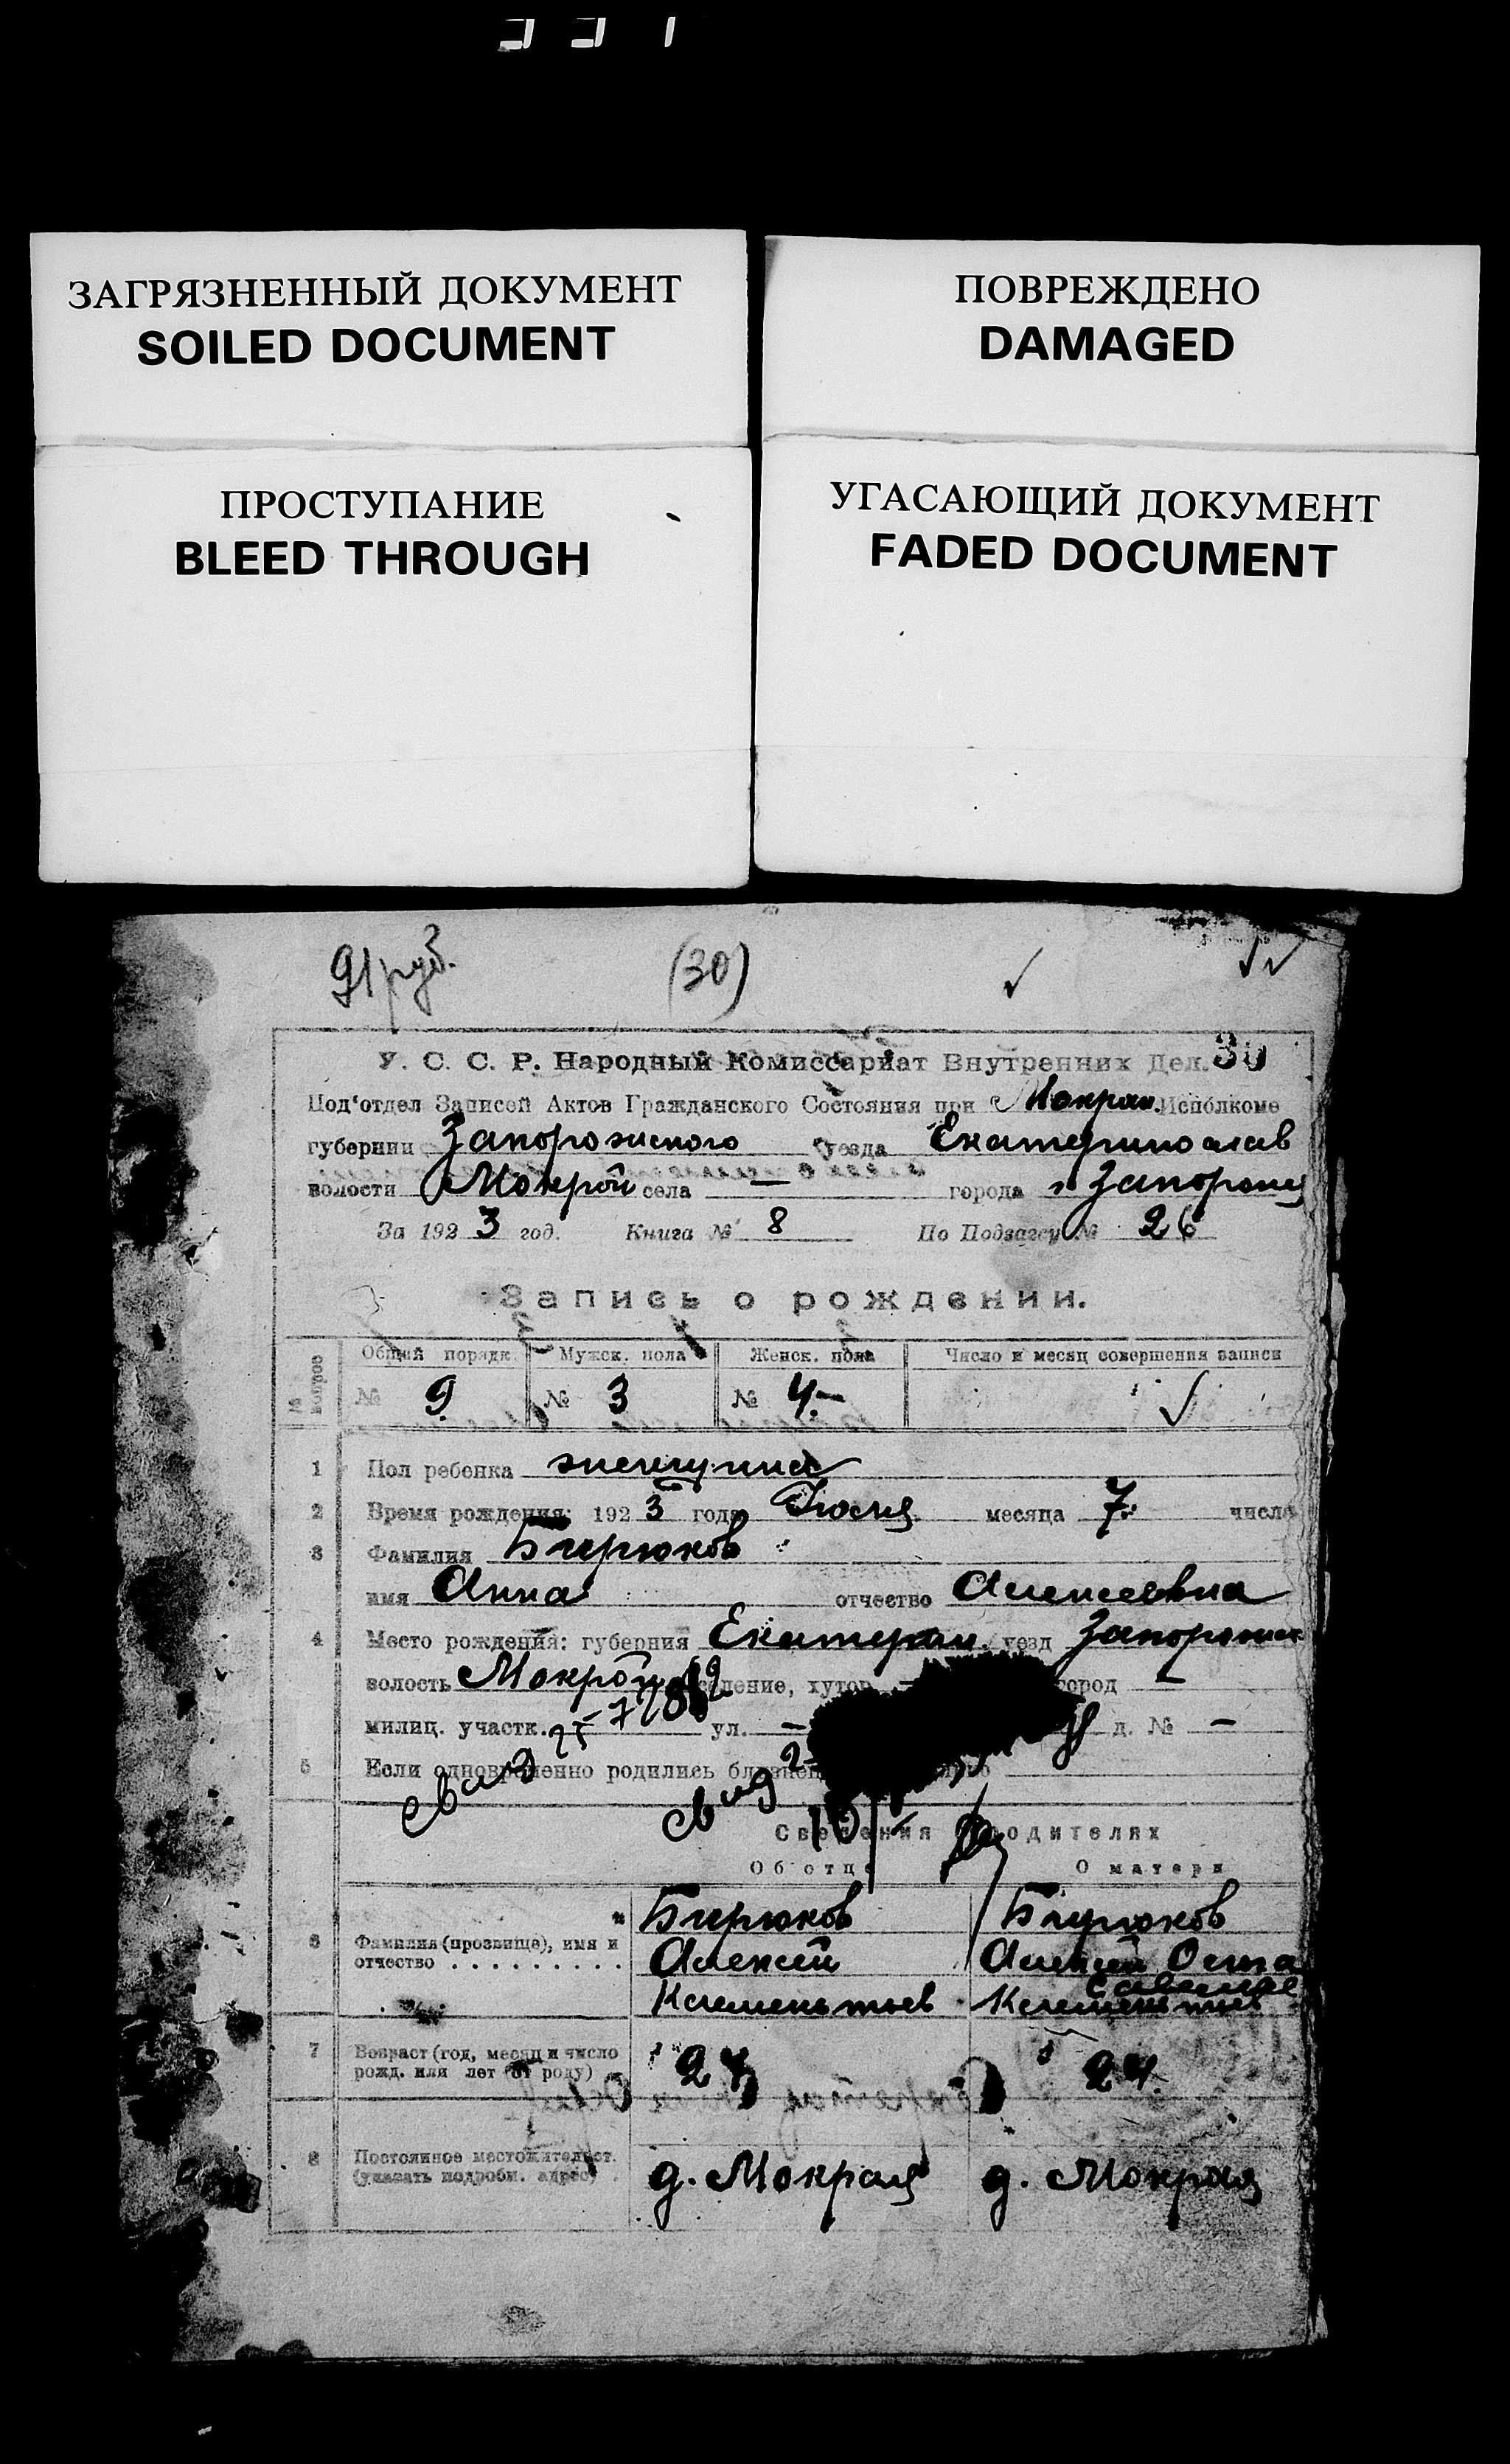 ЗАГРЯЗНЕННЫЙ ДОКУМЕНТ
SOILED DOCUMENT
ПОВРЕЖДЕНО
DAMAGED
ПРОСТУПАНИЕ
BLEED THROUGH
УГАСАЮЩИЙ ДОКУМЕНТ
FADED DOCUMENT
91 руб. (30)
У. С. С. Р. Народный Комиссариат Внутренних Дел. 30
Под'отдел Записей Актов Гражданского Состояния при Мокрян. Исполкоме
губернии Запорожского уезда Екатеринослав
волости Мокрой села — города
За 1923 год. Книга № 8 По Подзагсу № 26
Запись о рождении.
Общий порядк. Мужск. пола Женск. пола Число и месяц совершения записи
№ 9 № 3 № 4
1 Пол ребенка женщина
2 Время рождения: 1923 года Июля месяца 7 числа
3 Фамилия Бирюков
имя Анна отчество Алексеевна
4 Место рождения: губерния Екатерин. уезд Запорожск
волость Мокрой селение, хутор город —
милиц. участк. ул. — д. № —
5 Если одновременно родились
Сведения о родителях
Об отце О матери
Бирюков Бирюков
6 Фамилия (прозвище), имя и Алексей Алексей
отчество . . . . . . . . . Клеменьтьев Клеменьтьев
7 Возраст (год, месяц и число
рожд. или лет от роду) 24 24.
8 Постоянное местожительст.
(указать подробн. адрес) д. Мокрая д. Мокрая